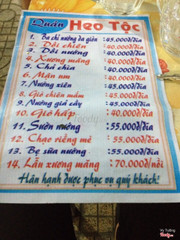 Quán Heo Tộc
1. Ba chỉ nướng da giòn :45.000đ/dĩa
2. Dồi chiên :40.000đ/dĩa
3. Dồi nướng :40.000đ/dĩa
4. Xương măng :40.000đ/dĩa
5. Chả chìa :40.000đ/dĩa
6. Mận xm :40.000đ/dĩa
7. Nướng xiên :40.000đ/dĩa
8. Giò chiên mắm :45.000đ/dĩa
9. Nướng giả cầy :45.000đ/dĩa
10. Giò hấp :40.000đ/dĩa
11. Sườn nướng :55.000đ/dĩa
12. Chạo riềng mẻ :55.000đ/dĩa
13. Bẹ sữa nướng :55.000đ/dĩa
14. Lẩu xương măng :70.000đ/nồi
Hân hạnh được phục vụ quý khách!